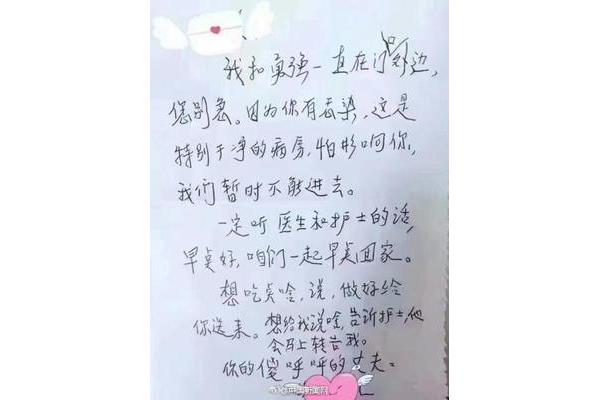 我和勇强一直在门旁边,
您别急。因为你有感染,这是
特别干净的病房,怕影响你,
我们暂时不能进去。
一定听医生和护士的话,
早点好,咱们一起早点回家。
想吃点啥,说,做好给
你送来。想给我说啥,告诉护士,他
会马上转告我。
你的傻呼呼的丈夫: